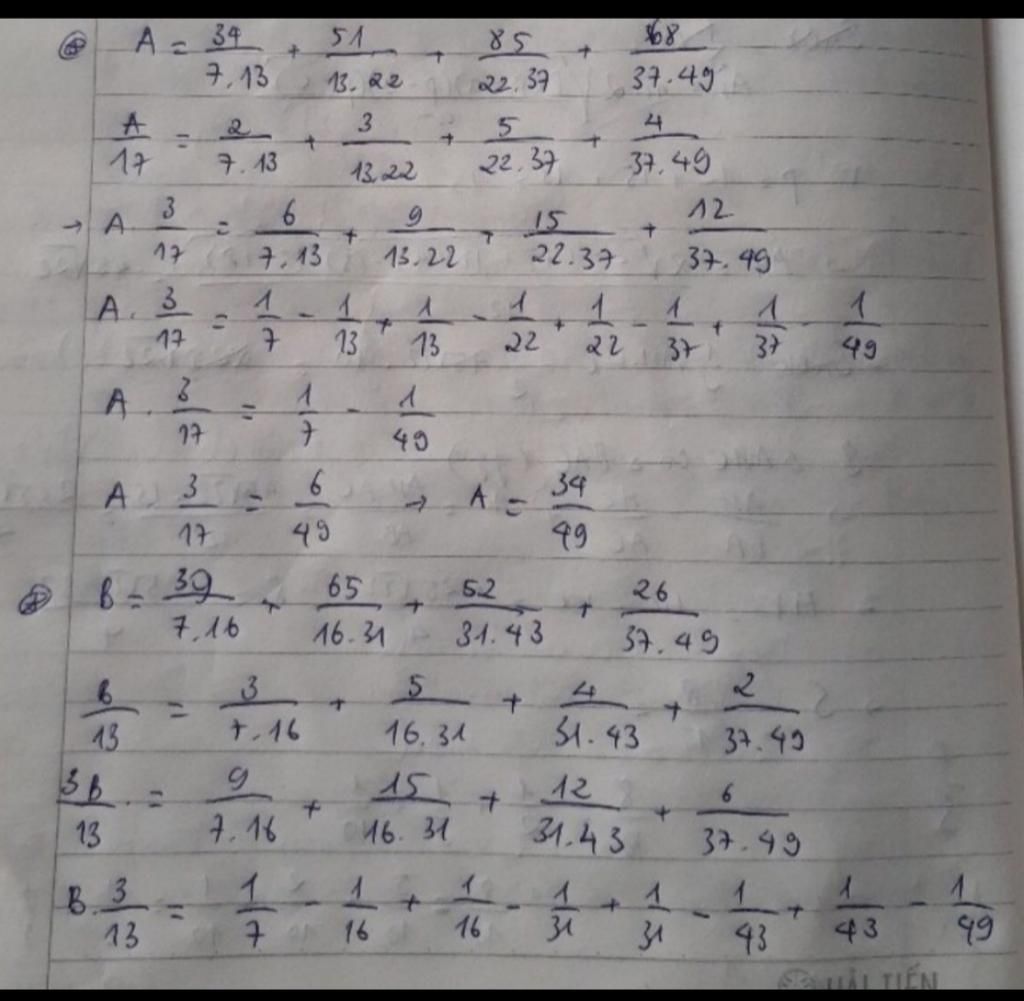 ⊛ A = 34/7.13 + 51/13.22 + 85/22.37 + 68/37.49
A/17 = 2/7.13 + 3/13.22 + 5/22.37 + 4/37.49
→ A. 3/17 = 6/7.13 + 9/13.22 + 15/22.37 + 12/37.49
A. 3/17 = 1/7 - 1/13 + 1/13 - 1/22 + 1/22 - 1/37 + 1/37 - 1/49
A. 3/17 = 1/7 - 1/49
A 3/17 = 6/49 → A = 34/49
⊛ B = 39/7.16 + 65/16.31 + 52/31.43 + 26/37.49
B/13 = 3/7.16 + 5/16.31 + 4/31.43 + 2/37.49
3B/13 = 9/7.16 + 15/16.31 + 12/31.43 + 6/37.49
B. 3/13 = 1/7 - 1/16 + 1/16 - 1/31 + 1/31 - 1/43 + 1/43 - 1/49
HẢI TIẾN